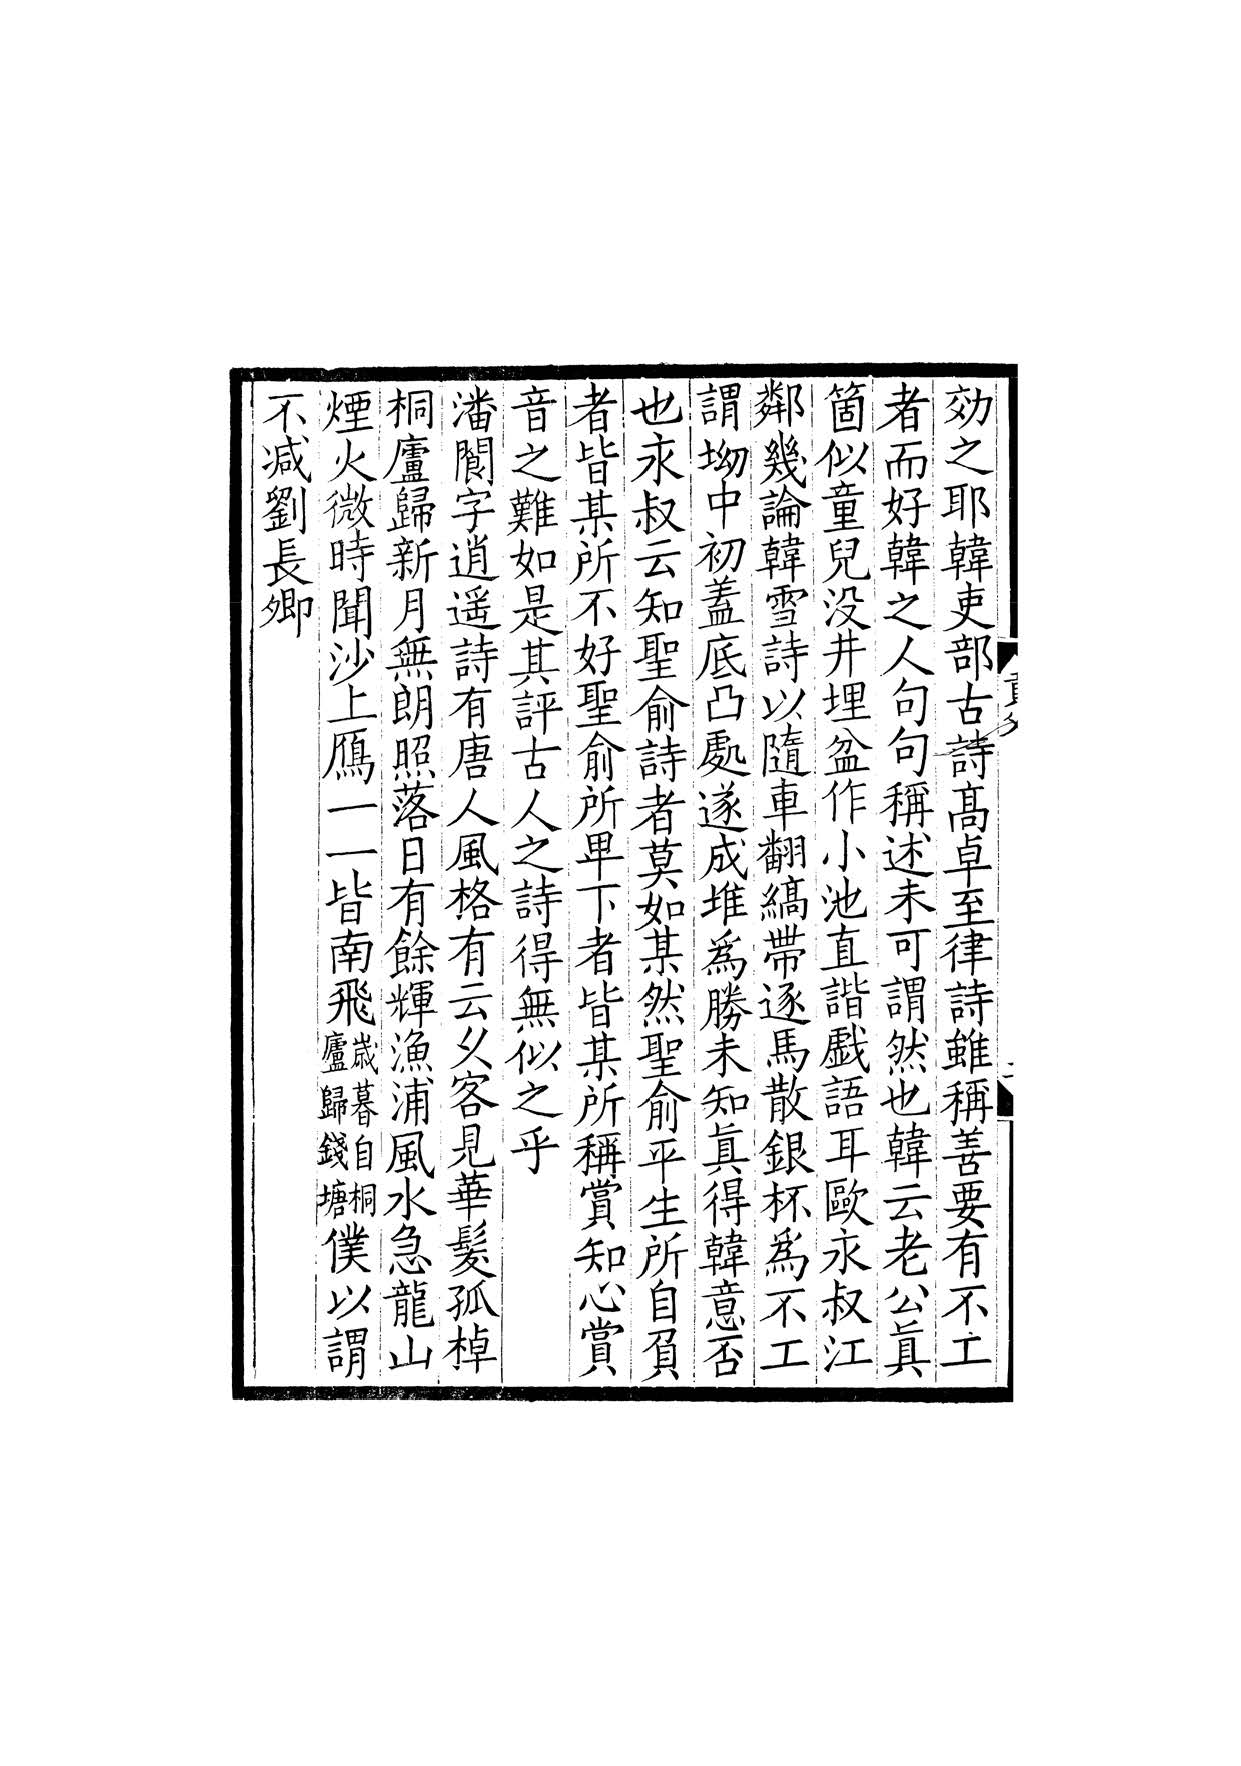 効之耶韓吏部古詩髙卓至律詩雖稱善要有不工
者而好韓之人句句稱述未可謂然也韓云老公真
箇似童兒没井埋盆作小池直諧戯語耳歐永叔江
鄰幾論韓雪詩以隨車翻縞帶逐馬散銀杯爲不工
謂坳中初葢底凸處遂成堆爲勝未知真得韓意否
也永叔云知聖俞詩者莫如某然聖俞平生所自負
者皆某所不好聖俞所卑下者皆某所稱賞知心賞
音之難如是其評古人之詩得無似之乎
潘閬字逍遥詩有唐人風格有云乆客見華髮孤棹
桐廬歸新月無朗照落日有餘輝漁浦風水急龍山
煙火微時聞沙上鴈一一皆南飛歲暮自桐廬歸錢塘僕以謂
不减劉長卿